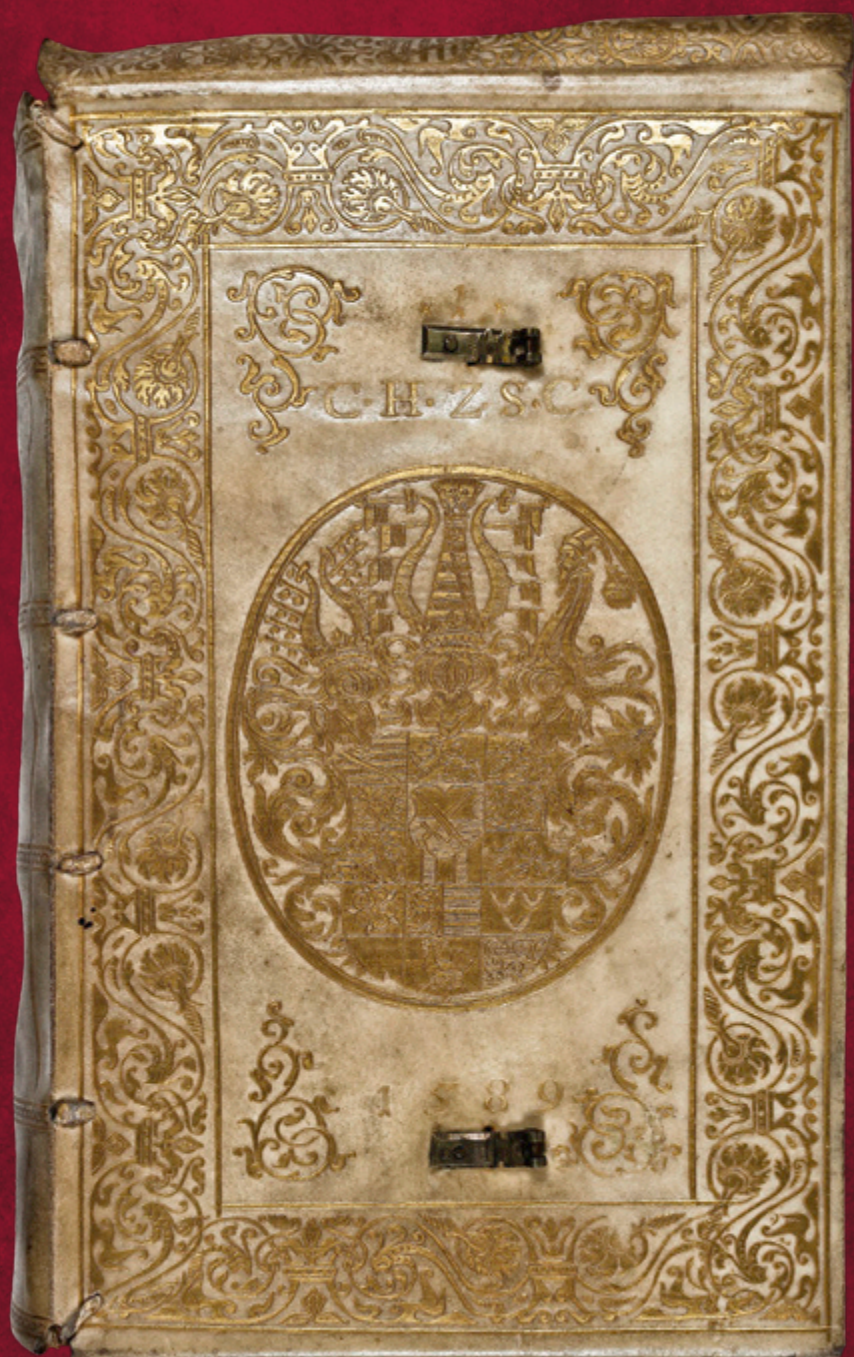 C·H·Z S·C
1589